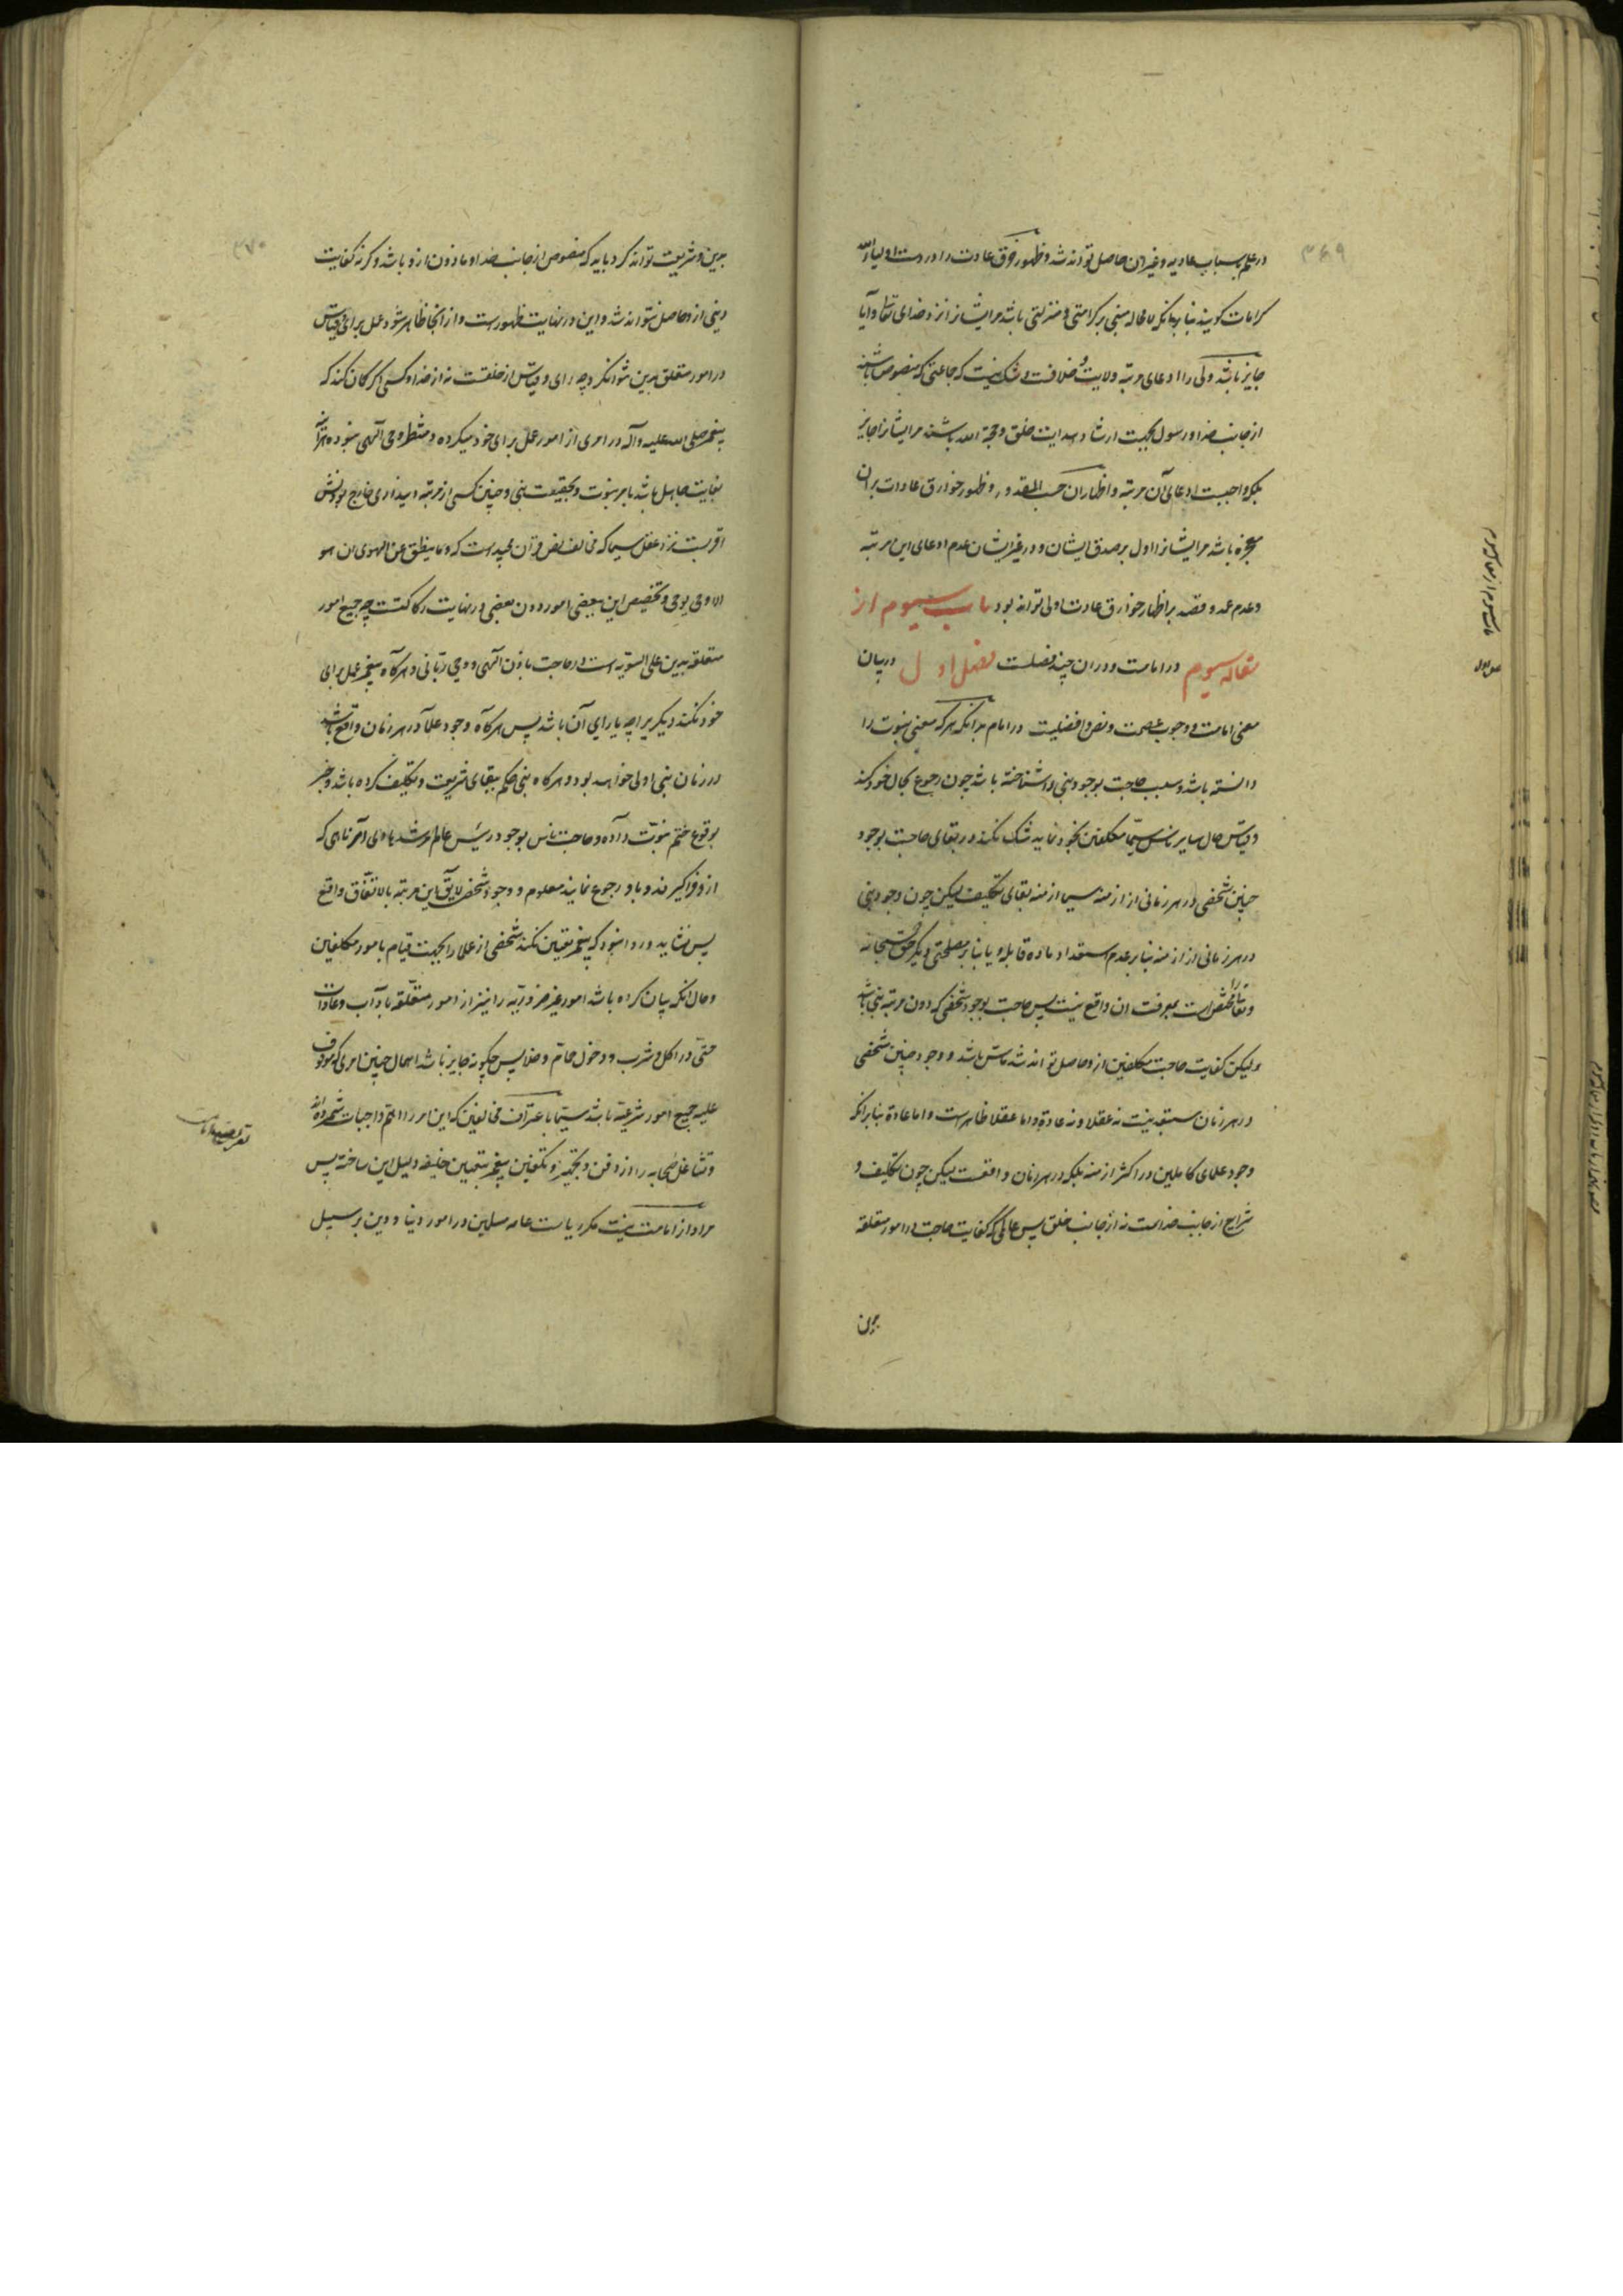 ۳۶۹
در علم باسباب عادیه و غیر آن حاصل تواند شد و ظهور خرق عادت را در دست اولیاء الله
کرامات گویند بنا بر آنکه لا محاله مبنی بر کرامتی و منزلتی باشد مر ایشانرا نزد خدای تعالی و آیا
جایز باشد ولی را ادعای مرتبه ولایت و خلافت شک نیست که جماعتی که منصوص باشند
از جانب خدا و رسول بجهت ارشاد و هدایت خلق و حجة الله باشند مر ایشانرا جایز
بلکه واجبست ادعای آن مرتبه و اظهار آن حسب المقدور و ظهور خوارق عادات بر آن
معجزه باشد مر ایشانرا اول بر صدق ایشان و در غیر ایشان عدم ادعای این مرتبه
و عدم عمد و قصد بر اظهار خوارق عادت اولی تواند بود باب سیوم از
مقاله سیوم در امامت و در آن چند فصلست فصل اول در بیان
معنی امامت و وجوب عصمت و نص و افضلیت در امام بدانکه هر که معنی نبوت را
دانسته باشد و سبب حاجت بوجود نبی را شناخته باشد چون رجوع بحال خود کند
و قیاس حال سایر ناس سیما مکلفین بخود نماید شک نکند در بقای حاجت بوجود
چنین شخصی در هر زمانی از ازمنه سیما ازمنه بقای تکلیف لیکن چون وجود نبی
در هر زمانی از ازمنه بنا بر عدم استعداد ماده قابله و یا بنا بر مصلحتی دیگر که حق سبحانه
و تعالی مختص است بمعرفت آن واقع نیست پس حاجت بوجود شخصی که دون مرتبه نبی باشد
ولیکن کفایت حاجت مکلفین از او حاصل تواند شد ماس باشد و وجود چنین شخصی
در هر زمان مستبعد نیست نه عقلا و نه عادة و اما عقلا ظاهر است و اما عادة بنا بر آنکه
وجود علمای کاملین در اکثر ازمنه بلکه در هر زمان واقعست لیکن چون تکلیف و
شرایع از جانب خداست نه از جانب خلق پس عالمی که کفایت حاجت در امور متعلقه
بدین
باب سیوم از مقاله سیوم
فصل اول
۳۷۰
بدین و شریعت تواند کرد باید که منصوص از جانب خدا و ماذون از او باشد و گرنه کفایت
دینی از او حاصل نتواند شد و این در نهایت ظهورست و از اینجا ظاهر شود عمل برای و قیاس
در امور متعلق بدین نتوان کرد چه رای و قیاس از خلقست نه از خدا و کسی اگر گمان کند که
پیغمبر صلی الله علیه و آله در امری از امور عمل برای خود میکرده و منتظر وحی الهی نبوده هر آینه
بغایت جاهل باشد بامر نبوت و بحقیقت نبی و چنین کسی از مرتبه دینداری خارج بودنش
اقربست نزد عقل سیما که مخالف نص قرآن مجید است که وما ینطق عن الهوی ان هو
الا وحی یوحی و تخصیص این ببعضی امور دون بعضی در نهایت رکاکتست چه جمیع امور
متعلقه بدین علی السویه است در حاجت باذن الهی و وحی ربانی و هر گاه پیغمبر عمل برای
خود نکند دیگریرا چه یارای آن باشد پس هر گاه وجود علما در هر زمان واقع باشد
در زمان نبی اولی خواهد بود و هر گاه نبی حکم ببقای شریعت و تکلیف کرده باشد و خبر
بوقوع ختم نبوت داده و حاجت ناس بوجود رئیس عالم مرشد هادی آمر ناهی که
از او فرا گیرند و باو رجوع نمایند معلوم و وجود شخص لایق این مرتبه بالاتفاق واقع
پس نشاید و روا نبود که پیغمبر تعیین نکند شخصی از علما را بجهت قیام بامور مکلفین
و حال آنکه بیان کرده باشد امور غیر ضروریه را نیز از امور متعلقه بآداب و عادات
حتی در اکل و شرب و دخول حمام و خلا پس چگونه جایز باشد اهمال چنین امری که موقوف
علیه جمیع امور شرعیه باشد سیما باعتراف مخالفین که این امر را اهم واجبات شمرده اند
و تشاغل صحابه را از دفن و تجهیز و تکفین پیغمبر بتعیین خلیفه دلیل این ساخته پس
مراد از امامت نیست مگر ریاست عامه مسلمین در امور دنیا و دین بر سبیل